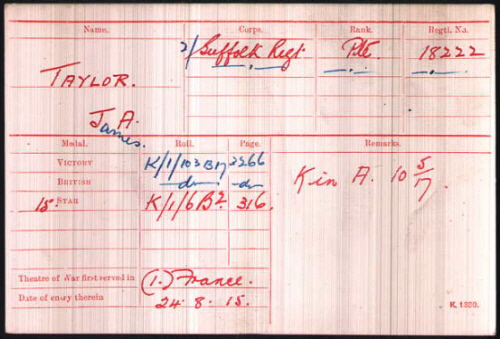 Name. Corps. Rank. Regtl. No.
2/Suffolk Regt. Pte. 18222
TAYLOR.
A.
James.
Medal. Roll. Page. Remarks.
VICTORY K/1/103 B17 2266
BRITISH -do- -do-
15 STAR K/1/6B2. 316.
K in A. 10 5/7.
Theatre of War first served in (1.) France.
Date of entry therein 24.8.15.
K. 1380.